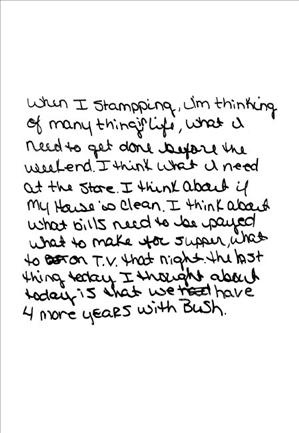 When I stampping, I'm thinking
of many things life, what I
need to get done before the
weekend. I think what I need
at the store. I think about if
my House is clean. I think about
what bills need to be payed
what to make for supper, what
to on T.V. that night. the last
thing today I thought about
today is that we have
4 more years with Bush.